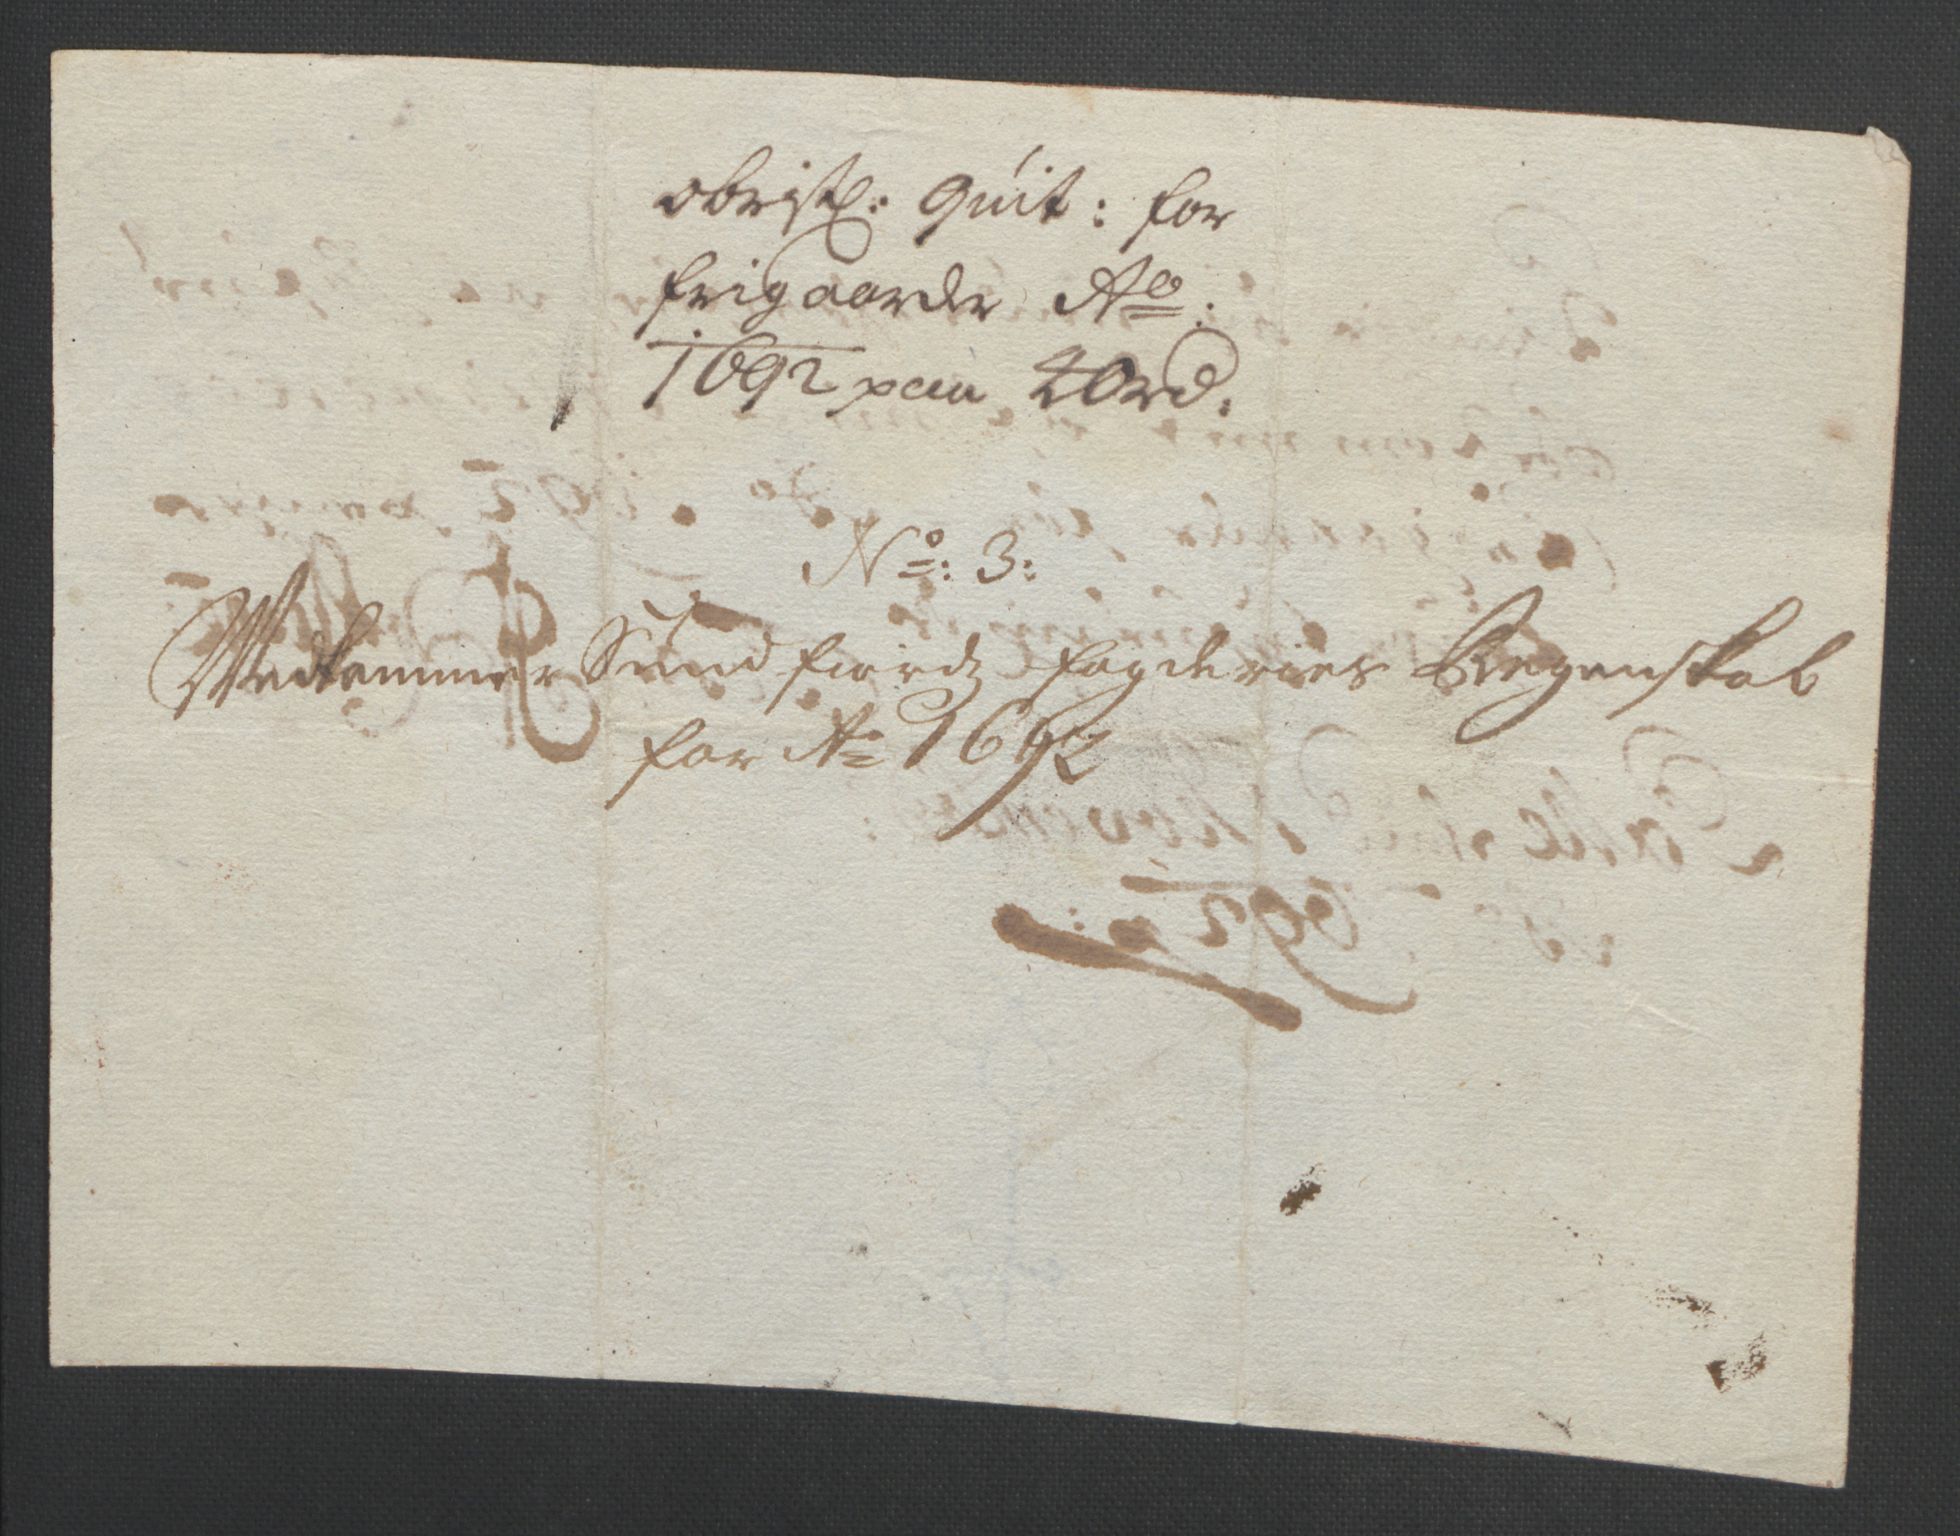 Obristl: Quit: for
frigaarder Ao:
1692 paa 40 rd.
No: 3:
Vedkommer Sundfiords fogderies Regenskab
for Ao 1692